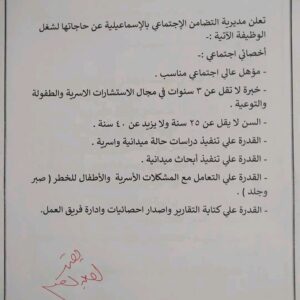 تعلن مديرية التضامن الإجتماعي بالإسماعيلية عن حاجاتها لشغل
الوظيفة الآتية :-
أخصائي اجتماعي :-
- مؤهل عالى اجتماعي مناسب .
- خبرة لا تقل عن ٣ سنوات في مجال الاستشارات الاسرية والطفولة
والتوعية .
- السن لا يقل عن ٢٥ سنة ولا يزيد عن ٤٠ سنة .
- القدرة علي تنفيذ دراسات حالة ميدانية واسرية .
- القدرة علي تنفيذ أبحاث ميدانية .
- القدرة علي التعامل مع المشكلات الأسرية والأطفال للخطر ( صبر
وجلد ) .
- القدرة علي كتابة التقارير واصدار احصائيات وادارة فريق العمل.